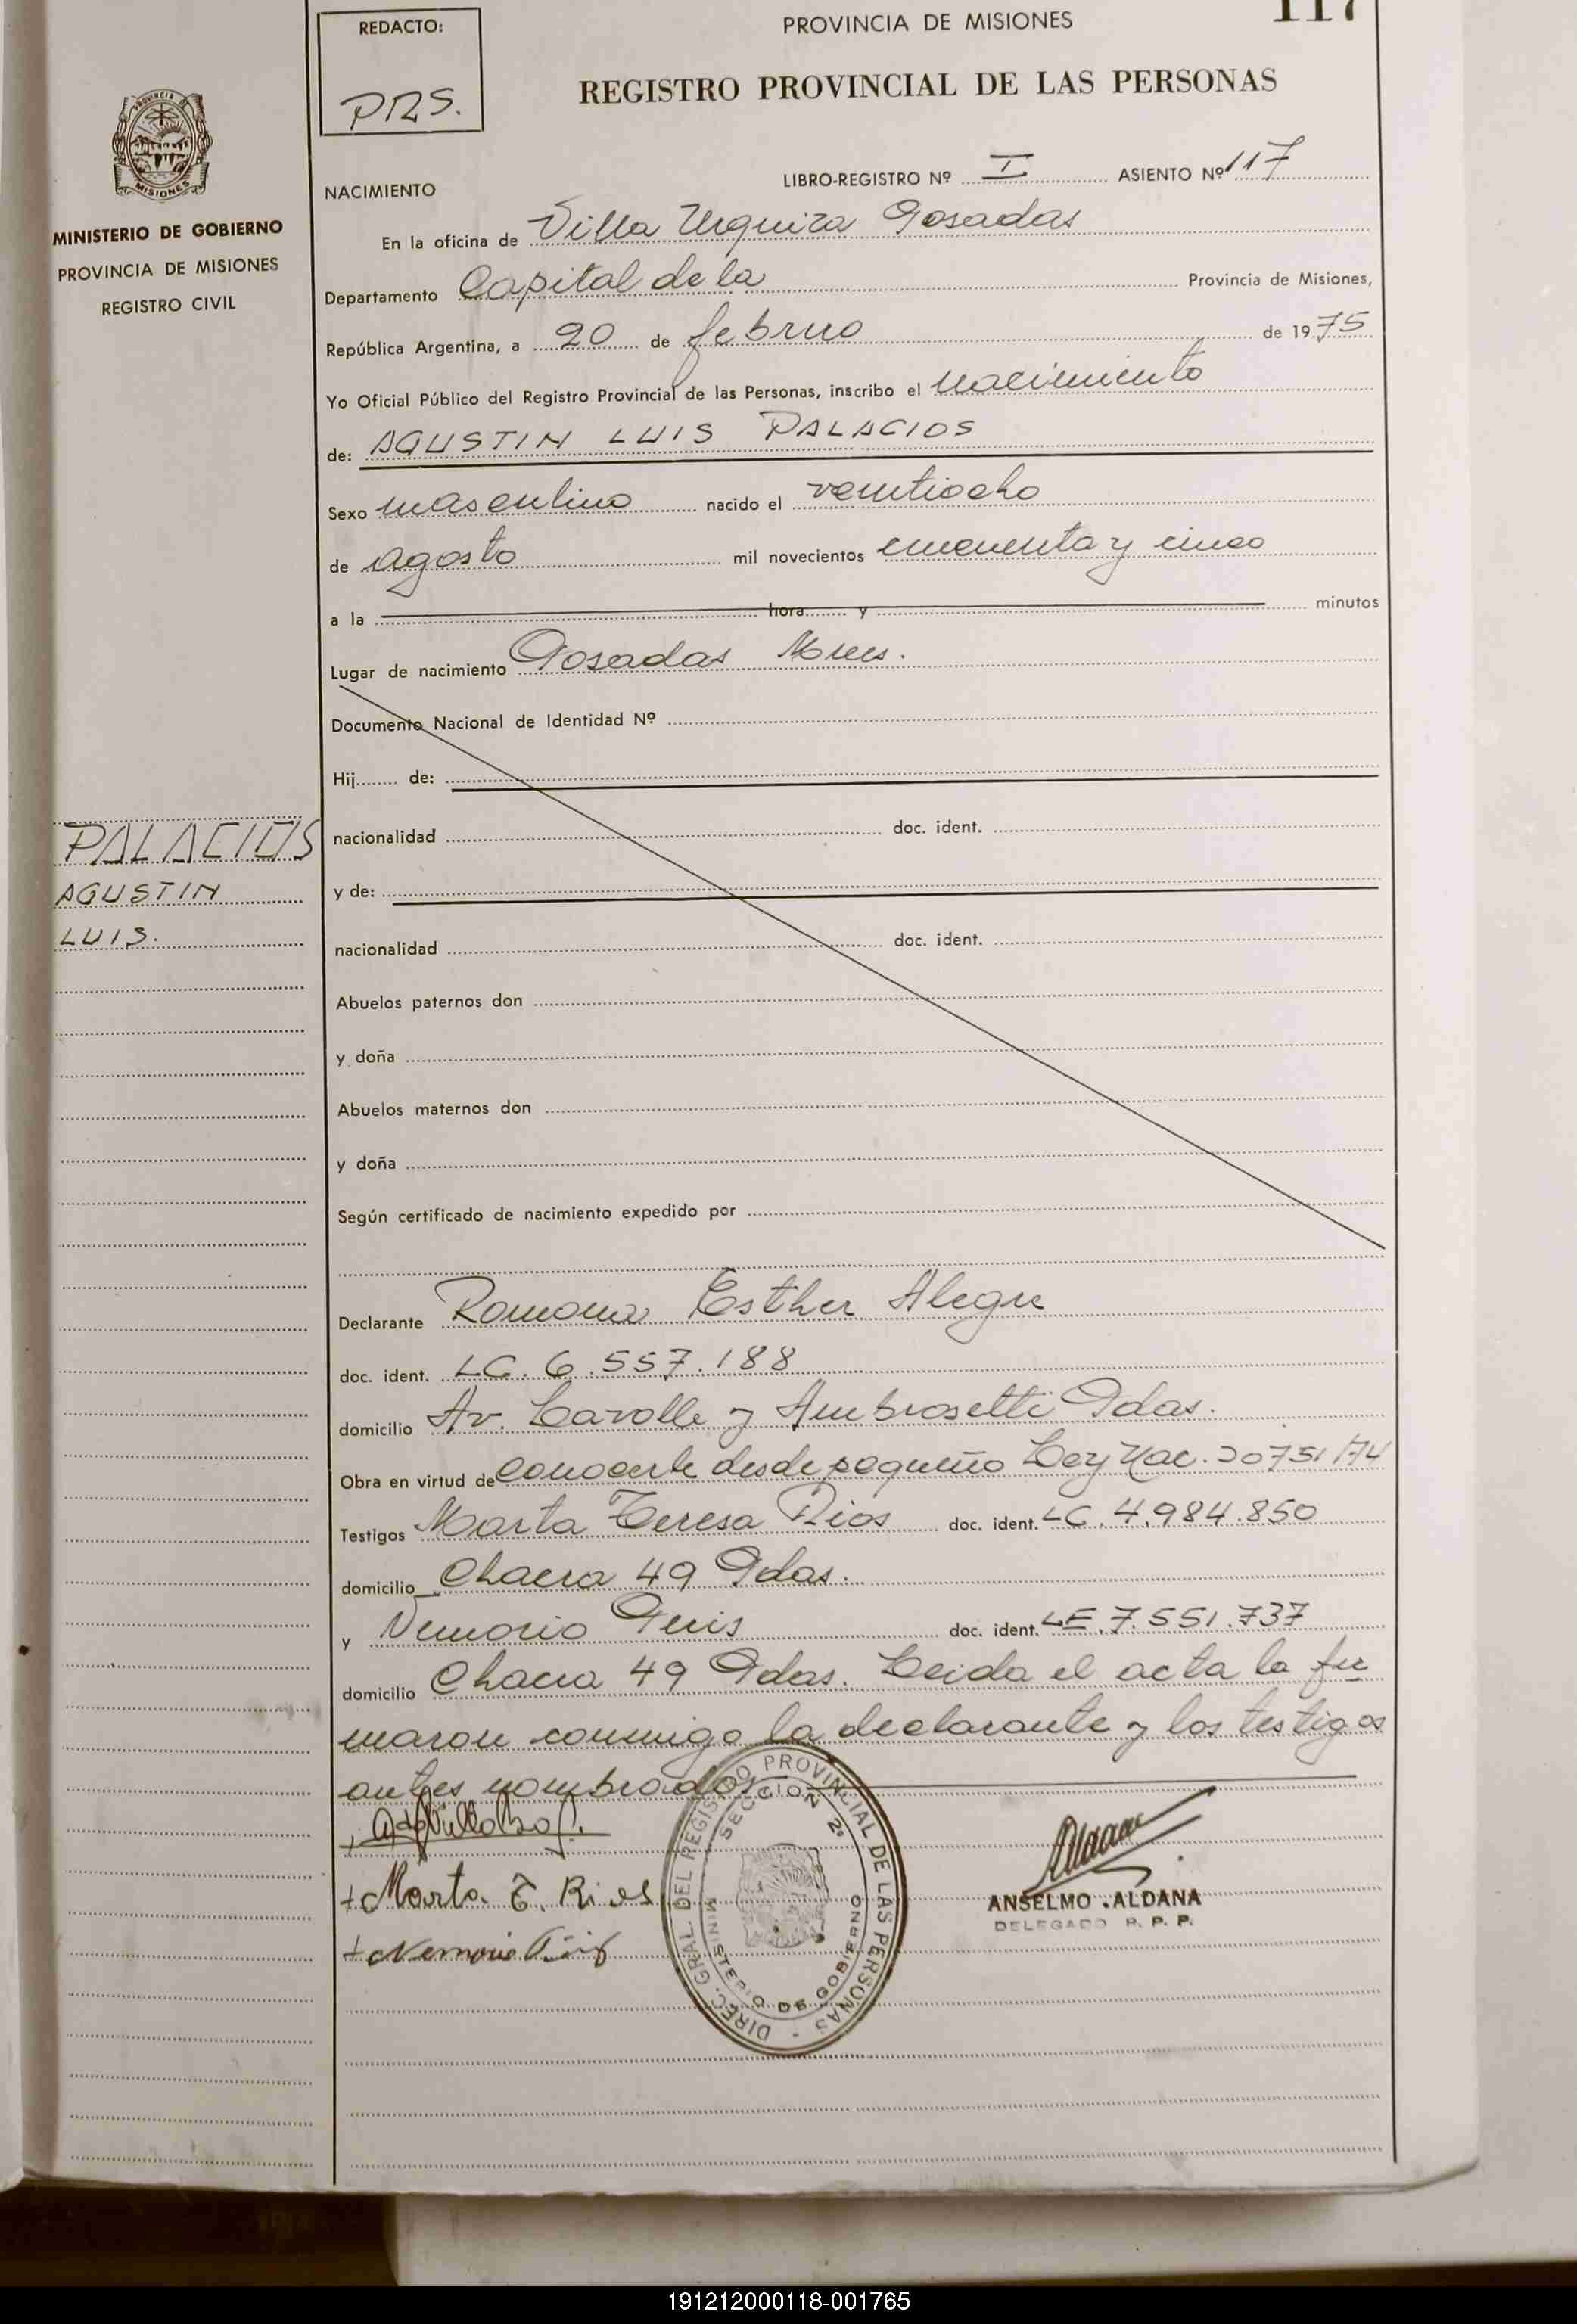 117
REDACTO:
PRS.
PROVINCIA DE MISIONES
REGISTRO PROVINCIAL DE LAS PERSONAS
PROVINCIA DE
MISIONES
MINISTERIO DE GOBIERNO
PROVINCIA DE MISIONES
REGISTRO CIVIL
LIBRO-REGISTRO Nº I ASIENTO Nº 117
NACIMIENTO
En la oficina de Villa Urquiza Posadas
Departamento Capital de la Provincia de Misiones,
República Argentina, a 20 de febrero de 1975
Yo Oficial Público del Registro Provincial de las Personas, inscribo el nacimiento
de: AGUSTIN LUIS PALACIOS
Sexo masculino nacido el veintiocho
de agosto mil novecientos cincuenta y cinco
a la hora y minutos
Lugar de nacimiento Posadas Mnes.
Documento Nacional de Identidad Nº
Hij de:
PALACIOS
AGUSTIN
LUIS.
nacionalidad doc. ident.
y de:
nacionalidad doc. ident.
Abuelos paternos don
y doña
Abuelos maternos don
y doña
Según certificado de nacimiento expedido por
Declarante Ramona Esther Alegre
doc. ident. LC. 6.557.188
domicilio Av. Lavalle y Ambrosetti Pdas.
Obra en virtud de conocerle desde pequeño Ley Nac. 20751/74
Testigos Marta Teresa Rios doc. ident. LC. 4.984.850
domicilio Chacra 49 Pdas.
y Nemorio doc. ident. LE. 7.551.737
domicilio Chacra 49 Pdas. Leida el acta la fir
maron conmigo la declarante y los testigos
antes nombrados
Marta. T. Rios
Nemorio
DIREC. GRAL. DEL REGISTRO PROVINCIAL DE LAS PERSONAS -
SECCION 2º
MINISTERIO DE GOBIERNO
Aldana
ANSELMO ALDANA
DELEGADO R. P. P.
191212000118-001765